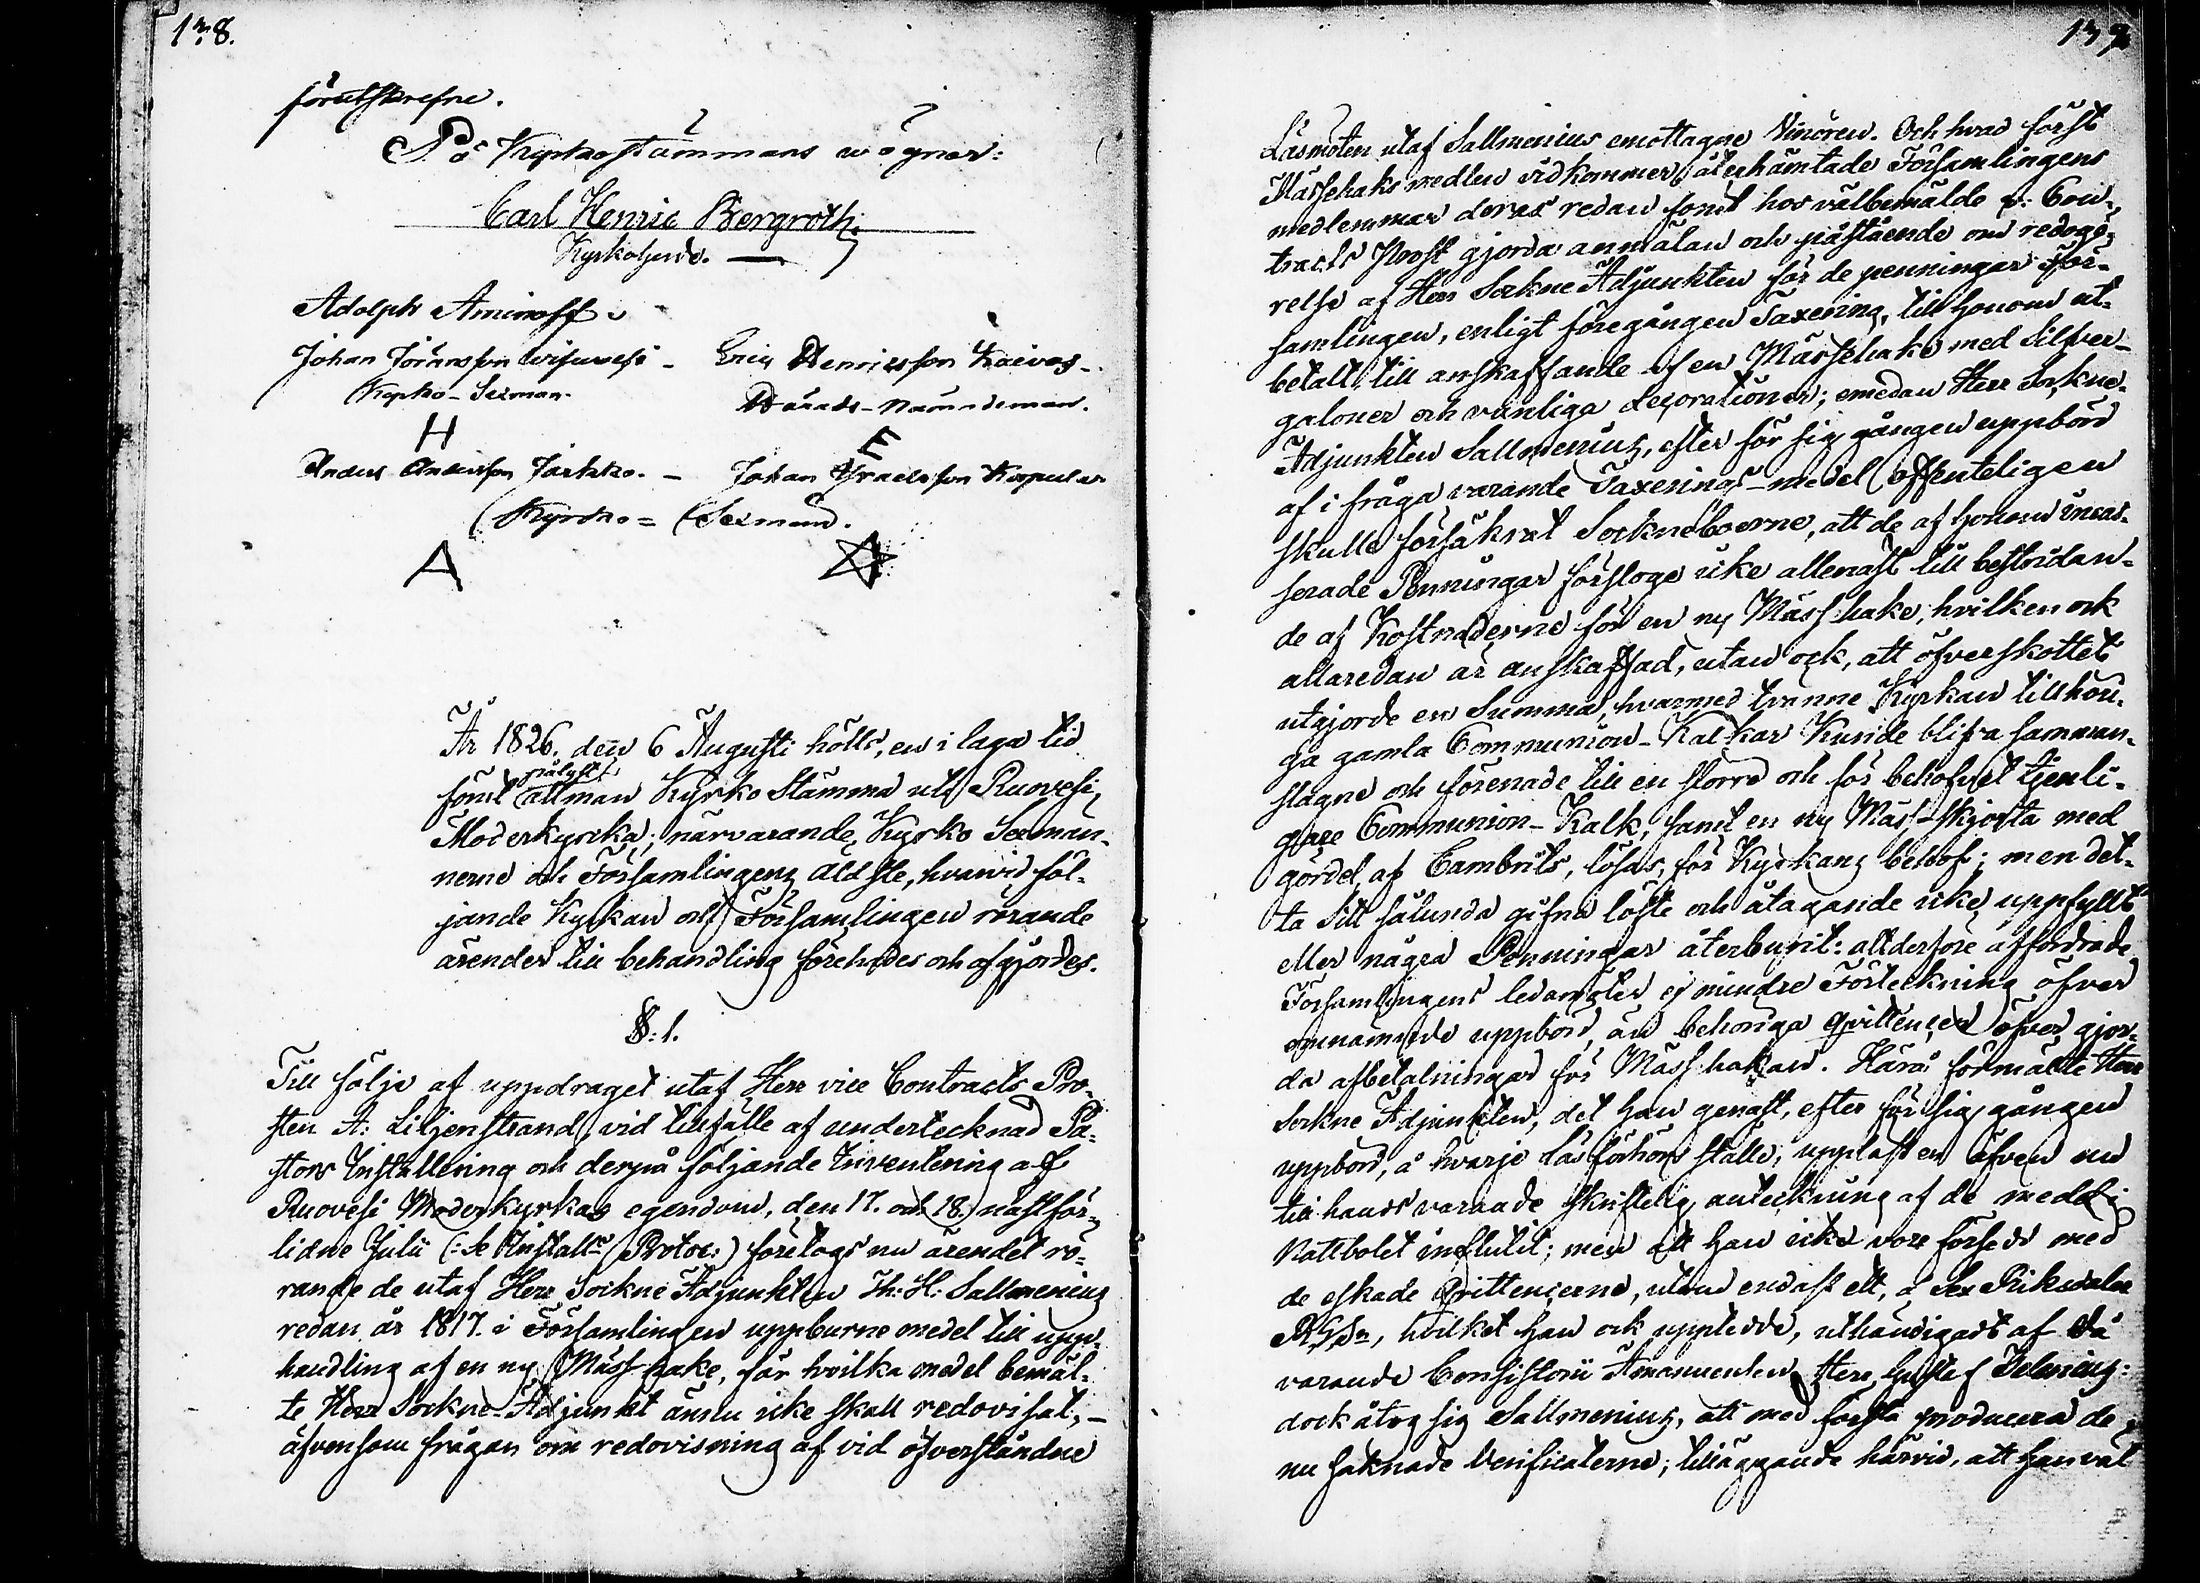 138.
förutskrefne.
På Kyrkostämmans wägnar:
Carl Henric Bergroth.
Kyrkoherde.
Adolph Aminoff
Johan Jöransson Wisuvesi - Eric Henricsson Kaivos -
Kyrko-Sexman. Härads-Nämndeman.
H E
Anders Andersson Jäskko. - Johan Israelsson
Kyrko = Sexmän.
A
År 1826. den 6 Augusti hölls, en i laga tid
pålyst
förut allmän Kyrko Stämma uti Ruovesi
Moderkyrka; närvarande Kyrko Sexmän-
nerne och Församlingens äldste, hvarvid föl-
jande Kyrkan och Församlingen rörande
ärender till behandling förehades och afgjordes.
§: 1.
Till följe af uppdraget utaf Herr vice Contracts Pro-
sten A: Liljenstrand, vid tillfälle af undertecknad Pa-
stors Installering och derpå följande Inventering af
Ruovesi Moderkyrkas egendom, den 17. och 18. nästför-
lidne Julii (: Se Installns Protoc:) företogs nu ärendet rö-
rande de utaf Herr Sockne Adjunkten Th: H: Sallmenius
redan år 1817. i Församlingen uppburne medel till upp-
handling af en ny Mässhake, för hvilka medel bemäl-
te Herr Sockne-Adjunkt ännu icke skall redovisat, -
äfvensom frågan om redovisning af vid öfverståndne
139
Läsmöten utaf Sallmenius emottagne Vinören. Och hvad först
Mässehaks medlen vidkommer, återhämtade Församlingens
medlemmar deras redan förut hos välbemälde v: Con-
tracts Prost gjorda anmälan och påstående om redogö-
relse af Herr Sockne Adjunkten för de penningar För-
samlingen, enligt föregången Taxering, till honom ut-
betalt, till anskaffande af en Mässehake med Silfver-
galoner och vanliga decorationer; emedan Herr Sockne-
Adjunkten Sallmenius, efter för sig gången uppbörd
af i fråga varande Taxerings-medel offenteligen
skulle försäkrat Socknéboerne, att de af honom incas-
serade Penningar försloge icke allenast till bestridan-
de af Kostnaderne för en ny Mässhake, hvilken ock
allaredan är anskaffad, utan ock, att öfverskottet
utgjorde en Summa, hvarmed tvenne Kyrkan tillhöri-
ga gamla Communion-Kalkar Kunde blifva samman-
slagne och förenade till en större och för behofvet tjenli-
gare Communion-Kalk, samt en ny Mäss-skjorta med
gördel af Cambrits, lösas, för Kyrkans behof; men det-
ta Sitt sålunda gifna löfte och åtagande icke uppfyllt
eller några Penningar återburit: allderföre affordrade
Församlingens ledamöter ej mindre Förteckning öfver
omnämnde uppbörd, än behöriga qvittencer öfver gjor-
da afbetalningar för Mässhakan. Härå förmälte Herr
Sockne Adjunkten, det han genast, efter för sig gången
uppbörd, å hvarje läsförhörs ställe, uppläst en äfven nu
till hands varande skriftelig anteckning af de medel
Nattbolet influtit; men att han icke vore försedd med
de äskade qvittencerne, utom endast ett, å Sex Riksdaler
RGSr, hvilket han ock uppledde, uthändigadt af då
varande Consistorii Amanuensen Herr Gustef Idelmius:
dock åtog sig Sallmenius, att med första producera de
nu saknade Verificaterne; tilläggande härvid, att han vät